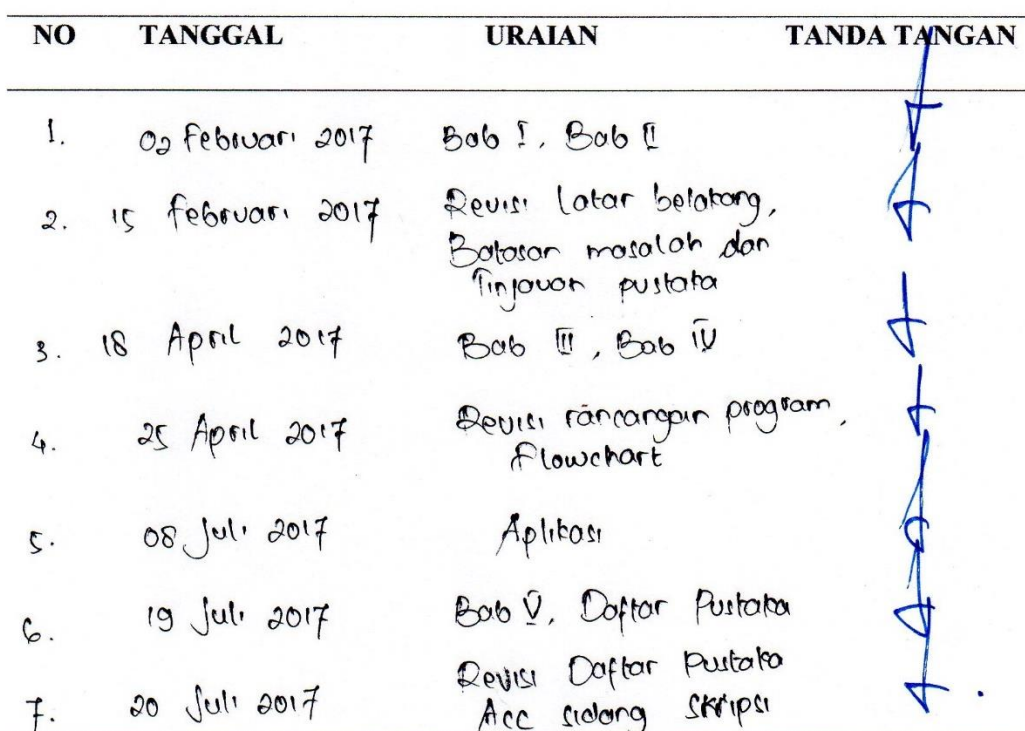 NO TANGGAL URAIAN TANDA TANGAN
1. 02 Februari 2017 Bab I, Bab II
2. 15 Februari 2017 Revisi latar belakang,
Batasan masalah dan
Tinjauan pustaka
3. 18 April 2017 Bab III, Bab IV
4. 25 April 2017 Revisi rancangan program,
Flowchart
5. 08 Juli 2017 Aplikasi
6. 19 Juli 2017 Bab V, Daftar Pustaka
Revisi Daftar Pustaka
7. 20 Juli 2017 Acc sidang skripsi